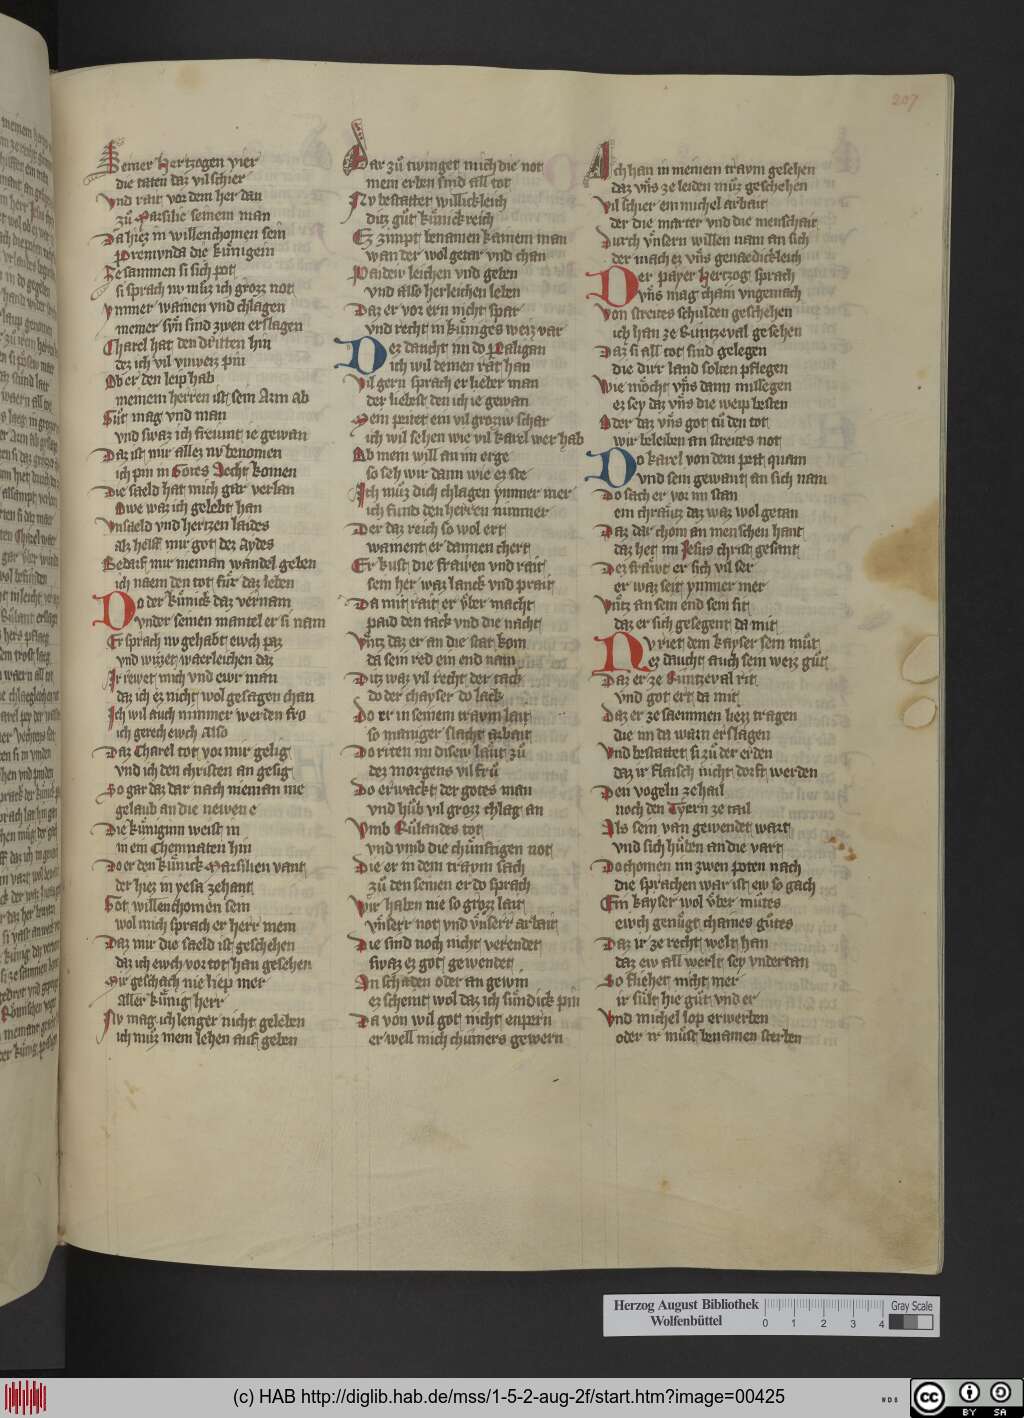 207
Seiner Hertzogen vier
die taten daz vil schier
Vnd rait vor dem her dan
zů Marsilie seinem man
Da hiez in willenchomen sein
Premvnda die kůnigein
Zesammen si sich pot
si sprach nv můz ich grozz not
ymmer wainen vnd chlagen
meiner sůn sind zwen erslagen
Charel hat den dritten hin
dez ich vil vnweiz pin
Ob er den leip hab
meinem herren ist sein Arm ab
Gůt mag vnd man
vnd swaz ich freunt ie gewan
Daz ist mir allez nv benomen
ich pin in Gotes Aecht komen
Die saeld hat mich gar verlan
Owe waz ich gelebt han
Vnsaeld vnd hertzen laides
alz helff mir got dez aydes
Bedarf mir nieman wandel geben
ich naem den tot fůr daz leben
Do der kůnick daz vernam
vnder seinen mantel er si nam
Er sprach nv gehabt ewch paz
vnd wizzet waerleichen daz
Ir rewet mich vnd ewr man
daz ich ez nicht wol gesagen chan
Ich wil auch nimmer werden fro
ich gerech ewch Also
Daz Charel tot vor mir gelig
vnd ich den christen an gesig
So gar daz dar nach nieman me
gelaub an die newen e
Die kůniginn weist in
in ein Chemnaten hin
Do er den kůnick Marsilien vant
der hiez in yesa zehant
Got willenchomen sein
wol mich sprach er herr mein
Daz mir die saeld ist geschehen
daz ich ewch vor tot han gesehen
Mir geschach nie liep mer
aller kůnig herr
Nv mag ich lenger nicht geleben
ich můz mein lehen auf geben
Dar zů twinget mich die not
mein erben sind all tot
Nv bestattet willickleich
ditz gůt kůnickreich
Ez zimpt benamen kainem man
wan der wol getar vnd chan
Paidew leichen vnd geben
vnd also herleichen leben
Daz er vor ern nicht spar
vnd recht in kůniges weiz var
Dez daucht im do Paligan
ich wil deinen rat han
Vil gern sprach er lieber man
der liebst den ich ie gewan
Mein peitet ein vil grozzw schar
ich wil sehen wie vil karel wer hab
Ob mein will an im erge
so seh wir dann wie ez ste
Ich můz dich chlagen ymmer mer
ich fund den herren nimmer
Der daz reich so wol ert
wainent er dannen chert
Er kust die frawen vnd rait
sein her waz lanck vnd prait
Da mit rait er vber macht
paid den tack vnd die nacht
Vntz daz er an die stat kom
da sein red ein end nam
Ditz waz vil recht der tack
do der chayser do lack
Do er in seinem traym lait
so maniger slacht arbait
Do riten im disew laut zů
dez morgens vil frů
Do erwackt der gotes man
vnd hůb vil grozz chlag an
Vmb Růlandes tot
vnd vmb die chůnftigen not
Die er in dem traym sach
zů den seinen er do sprach
Wir haben nie so grozz lait
vnserr not vnd vnserr arbait
Die sind noch nicht verendet
swaz ez got gewendet
An schaden oder an gewin
ez schemt wol daz ich sůndick pin
Da von wil got nicht enpern
er well mich chůmers gewern
Ich han in meinem traym gesehen
daz vns ze leiden můz geschehen
Vil schier ein michel arbait
der die marter vnd die menschait
Durch vnsern willen nam an sich
der mach ez vns genaedickleich
Der payer Hertzog sprach
vns mag chain vngemach
Von streites schulden geschehen
ich han ze Runtzeval gesehen
Daz si all tot sind gelegen
die dirr land solten pflegen
Wie möcht vns dann missegen
ez sey daz vns die weip besten
Oder daz vns got tů den tot
wir beleiben an streites not
Do karel von dem pett quam
vnd sein gewant an sich nam
Do sach er vor im stan
ein chrautz daz waz wol getan
Daz dar chom an menschen hant
daz het im Jesus christ gesant
Dez frawt er sich vil ser
er waz seit ymmer mer
Vntz an sein end sein sit
daz er sich gesegent da mit
Nv riet dem kayser sein můt
ez daucht auch sein weiz gůt
Daz er ze Runtzeval rit
vnd got ert da mit
Daz er ze saemmen liezz tragen
die im da warn erslagen
Vnd bestattet si zů der erden
daz ir flaisch nicht dorft werden
Den vogeln ze hail
noch den Tyern ze tail
Als sein van gewendet wart
vnd sich hůben an die vart
Do chomen im zwen poten nach
die sprachen war ist ew so gach
Ein kayser wol vber můtes
ewch genůgt chaines gůtes
Daz ir ze recht welt han
daz ew all werlt sey vndertan
So fliehet nicht mer
ir sůlt hie gůt vnd er
Vnd michel lop erwerben
oder ir můst benamen sterben
Herzog August Bibliothek
Wolfenbüttel
0 1 2 3 4
Gray Scale
(c) HAB http://diglib.hab.de/mss/1-5-2-aug-2f/start.htm?image=00425
WDB
cc BY SA